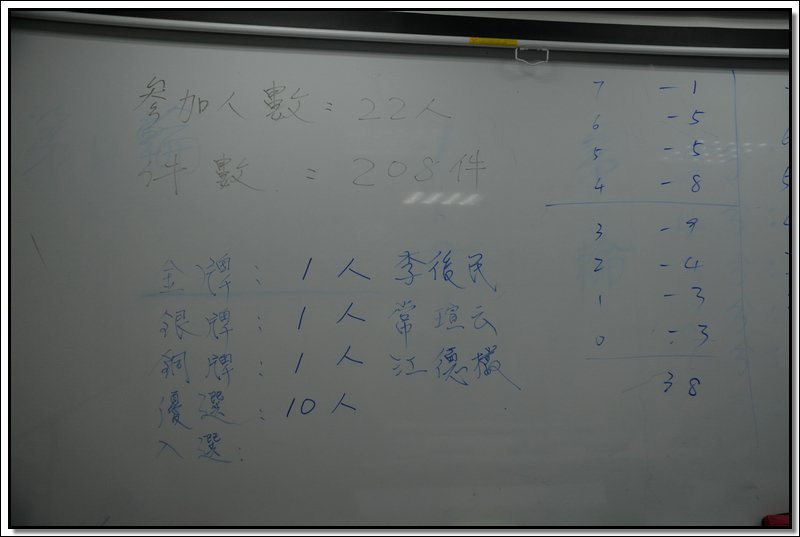 參加人數：22人
件數：208件
金牌：1人 季後民
銀牌：1人 常瑄云
銅牌：1人 江德檨
優選：10人
入選：
7 -1
6 -5
5 -5
4 -8
3 -9
2 -4
1 -3
0 -3
38